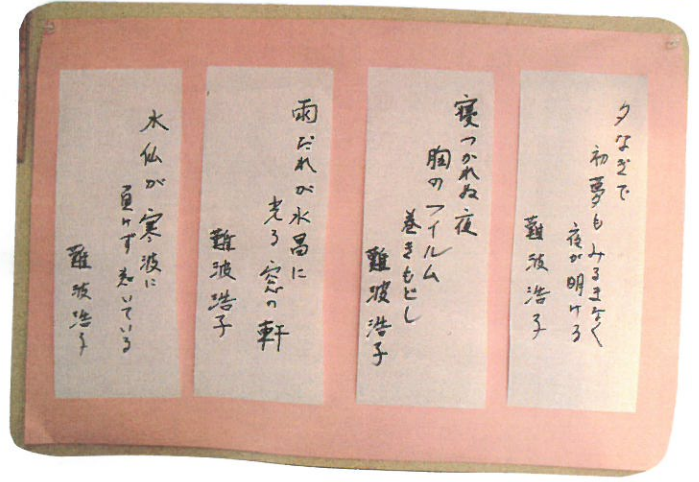 夕なぎで
初夢もみるまなく
夜が明ける
難波浩子
寝つかれぬ夜
胸のフイルム
巻きもどし
難波浩子
雨だれが水昌に
光る窓の軒
難波浩子
水仙が寒波に
負けず咲いている
難波浩子